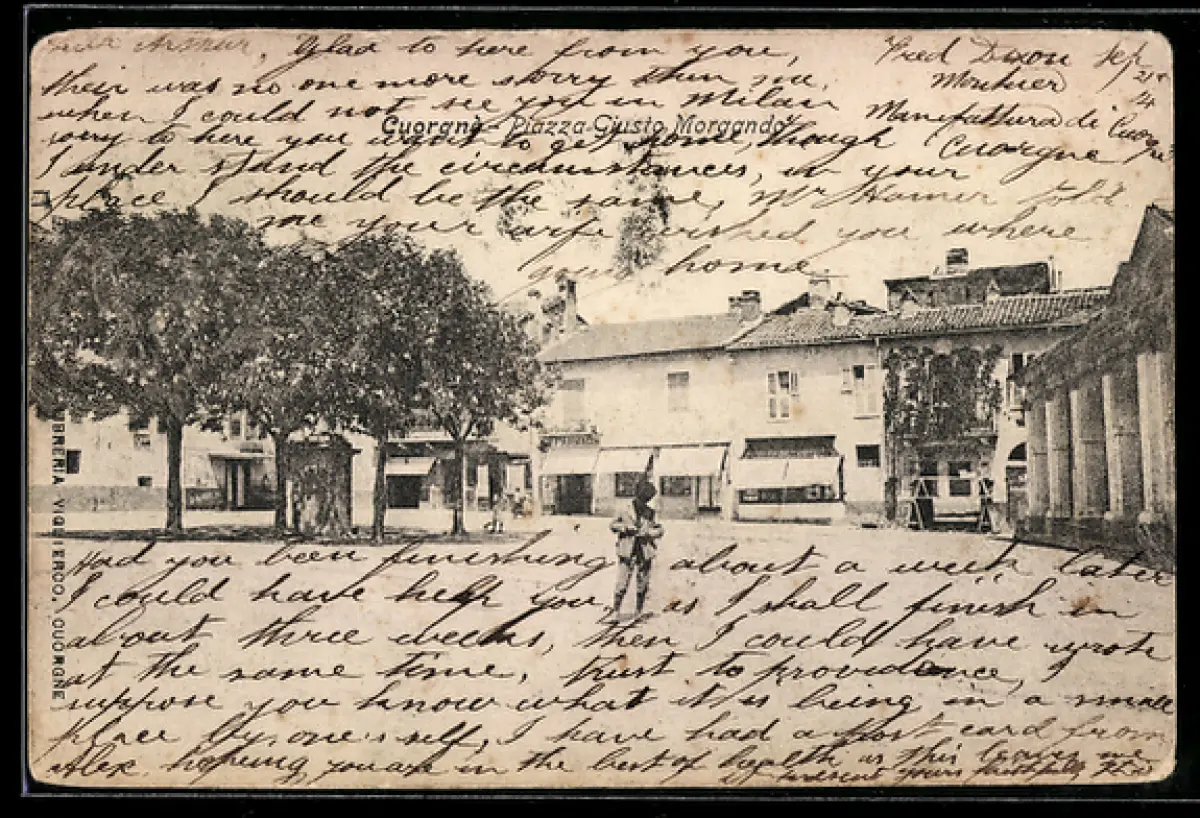 Dear Arthur, Glad to here from you,
their was no one more sorry then me,
when I could not see you in Milan
sorry to here you want to get home, though
I under stand the circumstances, in your
place I should be the same, Mr Hamer told
me your wife wished you where
home
Fred Dixon Sep
21st
Monteur 14
Manifattura di
Cuorgne
Cuorgnè - Piazza Giusto Morgando
Had you been finishing about a week later
I could have help you, as I shall finish in
about three weeks, then I could have wrote
at the same time, trust to providence, I
suppose you know what it is being in a small
place by one's self, I have had a post card from
Alex, hopeing you are in the best of health as this leaves me
at present yours faithfully
LIBRERIA VIGLIERCIO, CUORGNE